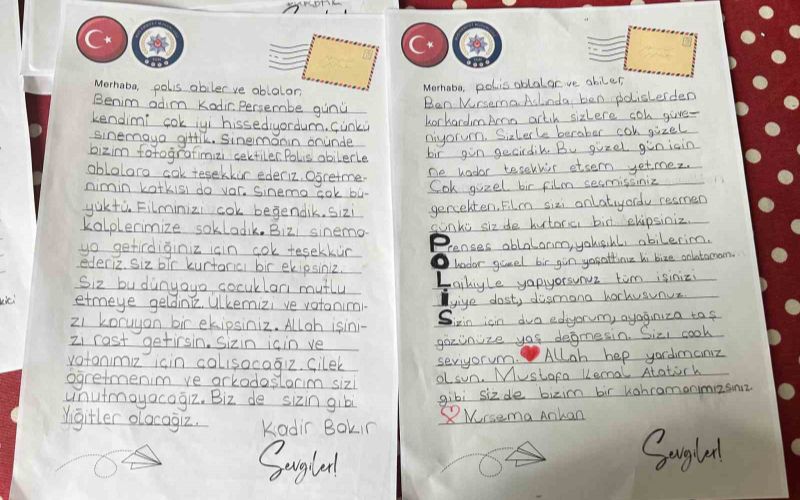 Merhaba, polis abiler ve ablalar
Benim adım Kadir. Perşembe günü
kendimi çok iyi hissediyordum. Çünkü
sinemaya gittik. Sinemanın önünde
bizim fotoğrafımızı çektiler. Polis abilerle
ablalara çok teşekkür ederiz. Öğretme-
nimin katkısı da var. Sinema çok bü-
yüktü. Filminizi çok beğendik. Sizi
kalplerimize sakladık. Bizi sinema-
ya getirdiğiniz için çok teşekkür
ederiz. Siz bir kurtarıcı bir ekipsiniz.
Siz bu dünyaya çocukları mutlu
etmeye geldiniz. Ülkemizi ve vatanımı-
zı koruyan bir ekipsiniz. Allah işini-
zi rast getirsin. Sizin için ve
vatanımız için çalışacağız. Çilek
öğretmenim ve arkadaşlarım sizi
unutmayacağız. Biz de sizin gibi
Yiğitler olacağız.
Kadir Bakır
Sevgiler!
Merhaba, polis ablalar ve abiler
Ben Nursema Aslında ben polislerden
korkardım Ama artık sizlere çok güve-
niyorum. Sizlerle beraber çok güzel
bir gün geçirdik. Bu güzel gün için
ne kadar teşekkür etsem yetmez.
Çok güzel bir film seçmişsiniz
gerçekten. Film sizi anlatıyordu resmen
çünkü siz de kurtarıcı bir ekipsiniz.
Prenses ablalarım, yakışıklı abilerim.
O kadar güzel bir gün yaşattınız ki bize anlatamam.
Layıkıyle yapıyorsunuz tüm işinizi
İyiye dost, düşmana korkusunuz.
Sizin için dua ediyorum, ayağınıza taş
gözünüze yaş değmesin. Sizi çook
seviyorum. Allah hep yardımcınız
olsun. Mustafa Kemal Atatürk
gibi siz de bizim bir kahramanımızsınız.
Nursema Arıkan
Sevgiler!